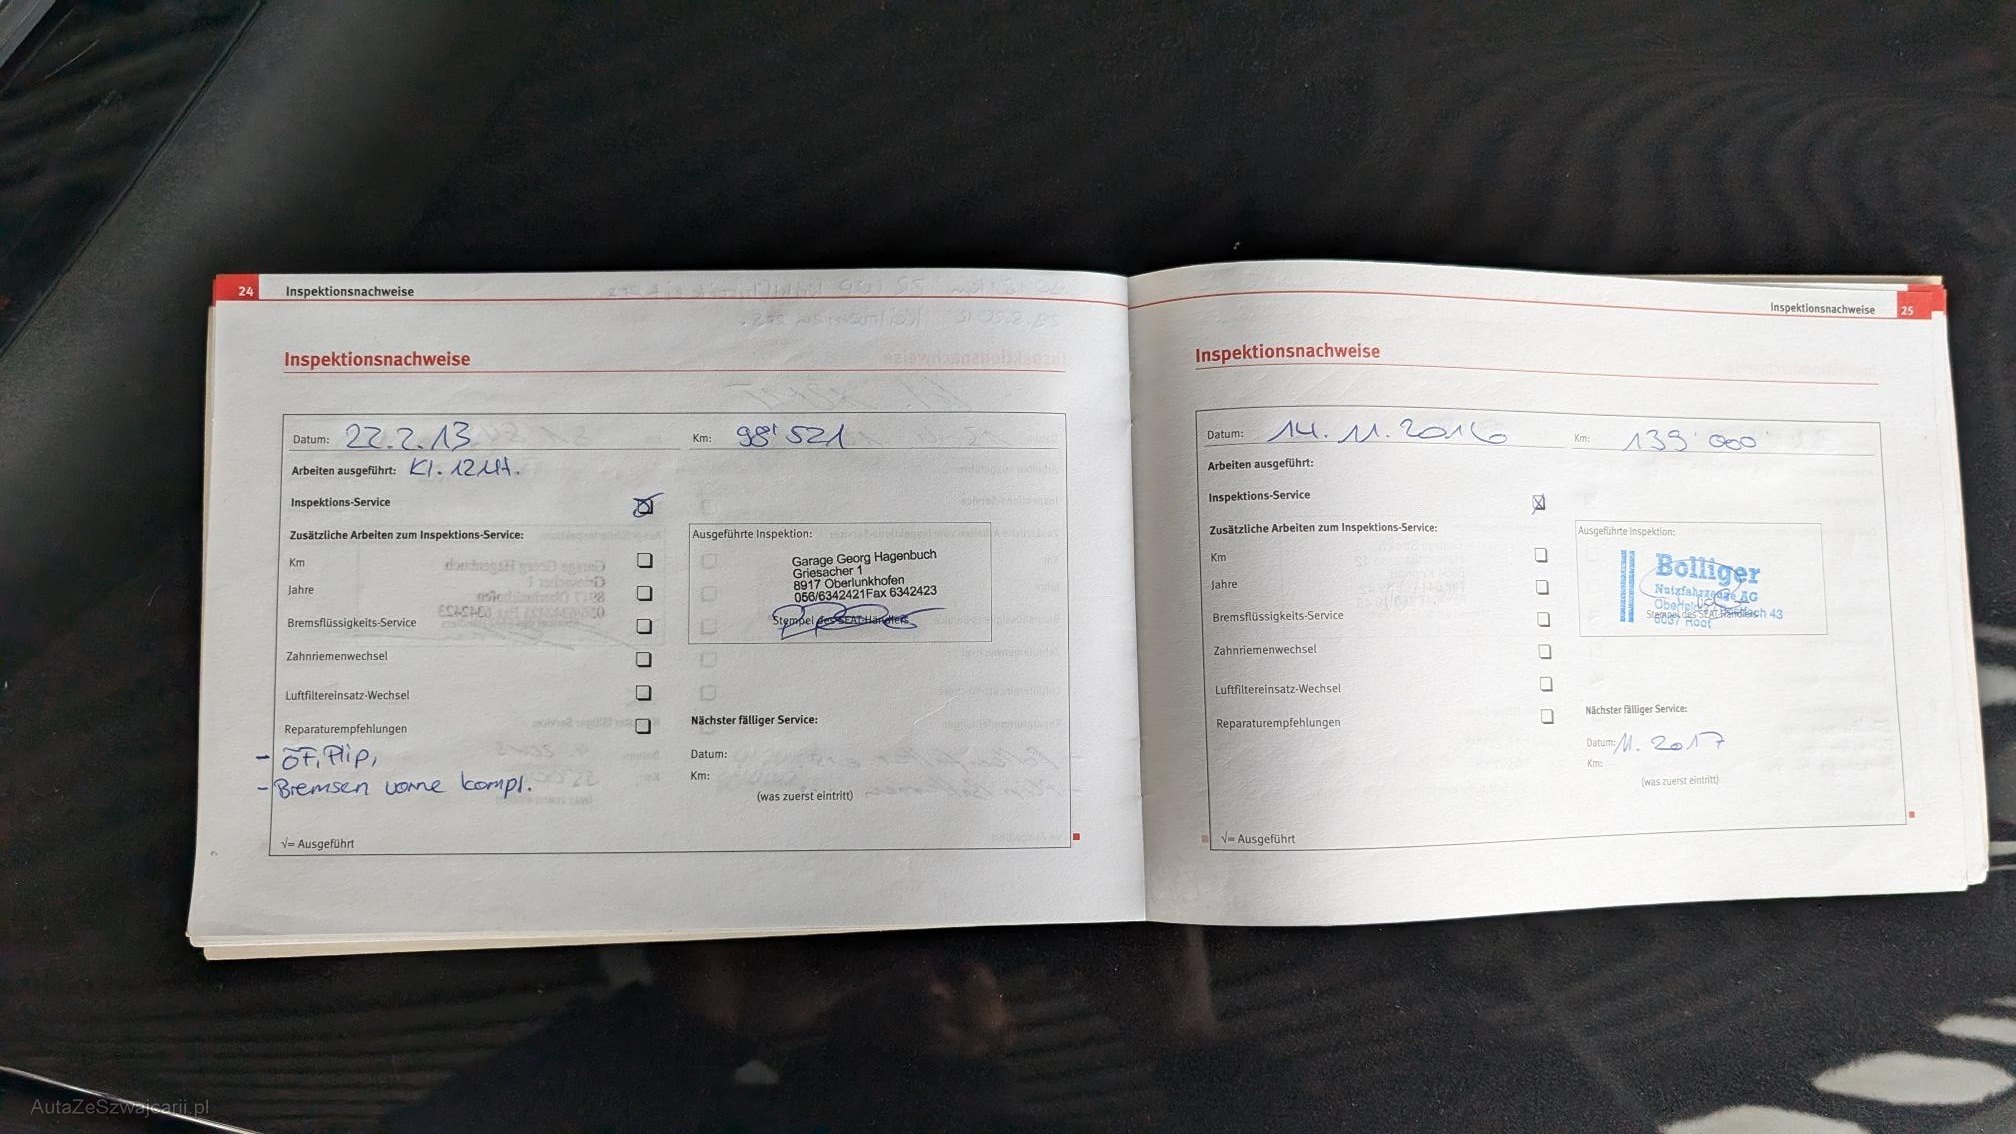 24 Inspektionsnachweise
Inspektionsnachweise
Datum: 22.2.13 Km: 98'521
Arbeiten ausgeführt: Kl. 12Mt.
Inspektions-Service
Zusätzliche Arbeiten zum Inspektions-Service:
Ausgeführte Inspektion:
Km
Jahre
Bremsflüssigkeits-Service
Zahnriemenwechsel
Luftfiltereinsatz-Wechsel
Reparaturempfehlungen
Garage Georg Hagenbuch
Griesacher 1
8917 Oberlunkhofen
056/6342421Fax 6342423
Stempel des SEAT-Händlers
- ÖF,
- Bremsen vorne kompl.
Nächster fälliger Service:
Datum:
Km:
(was zuerst eintritt)
√= Ausgeführt
Inspektionsnachweise 25
Inspektionsnachweise
Datum: 14.11.2016 Km: 139'000
Arbeiten ausgeführt:
Inspektions-Service
Zusätzliche Arbeiten zum Inspektions-Service:
Ausgeführte Inspektion:
Km
Jahre
Bremsflüssigkeits-Service
Zahnriemenwechsel
Luftfiltereinsatz-Wechsel
Reparaturempfehlungen
Bolliger
Nutzfahrzeuge AG
43
Stempel des SEAT-Händlers
6037 Root
Nächster fälliger Service:
Datum: 11. 2017
Km:
(was zuerst eintritt)
√= Ausgeführt
AutaZeSzwajcarii.pl